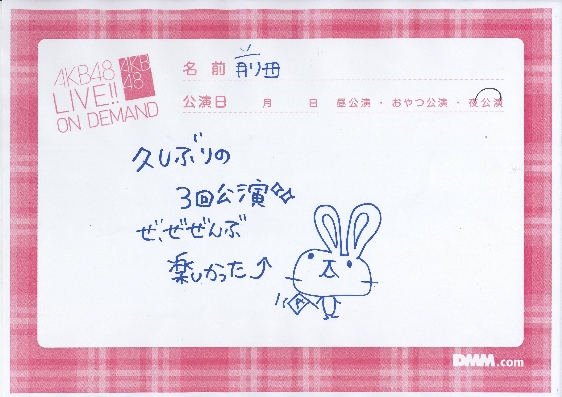 AKB48
LIVE!!
ON DEMAND
AKB
48
名前 前田
公演日 月 日 昼公演・おやつ公演・夜公演
久しぶりの
3回公演
ぜ、ぜぜんぶ
楽しかった↑
DMM.com